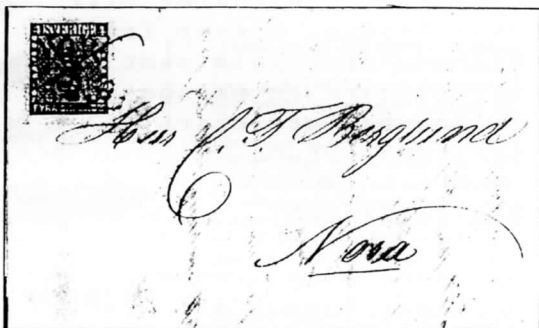 SVERIGE
Herr C. F. Berglund
Nora